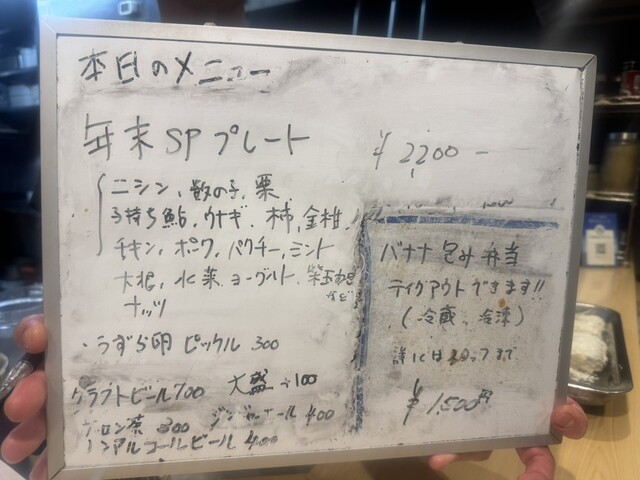 本日のメニュー
年末SPプレート
¥2,200-
ニシン、数の子、栗
子持ち鮎、ウナギ、柿、金柑、
チキン、ポーク、パクチー、ミント
大根、水菜、ヨーグルト、紫玉ねぎ
ナッツ など
・うずら卵ピックル 300
クラフトビール700 大盛 +100
ウーロン茶 300 ジンジャーエール 400
ノンアルコールビール 400
バナナ包み弁当
テイクアウトできます!!
(冷蔵、冷凍)
詳しくはスタッフまで
¥1,500円